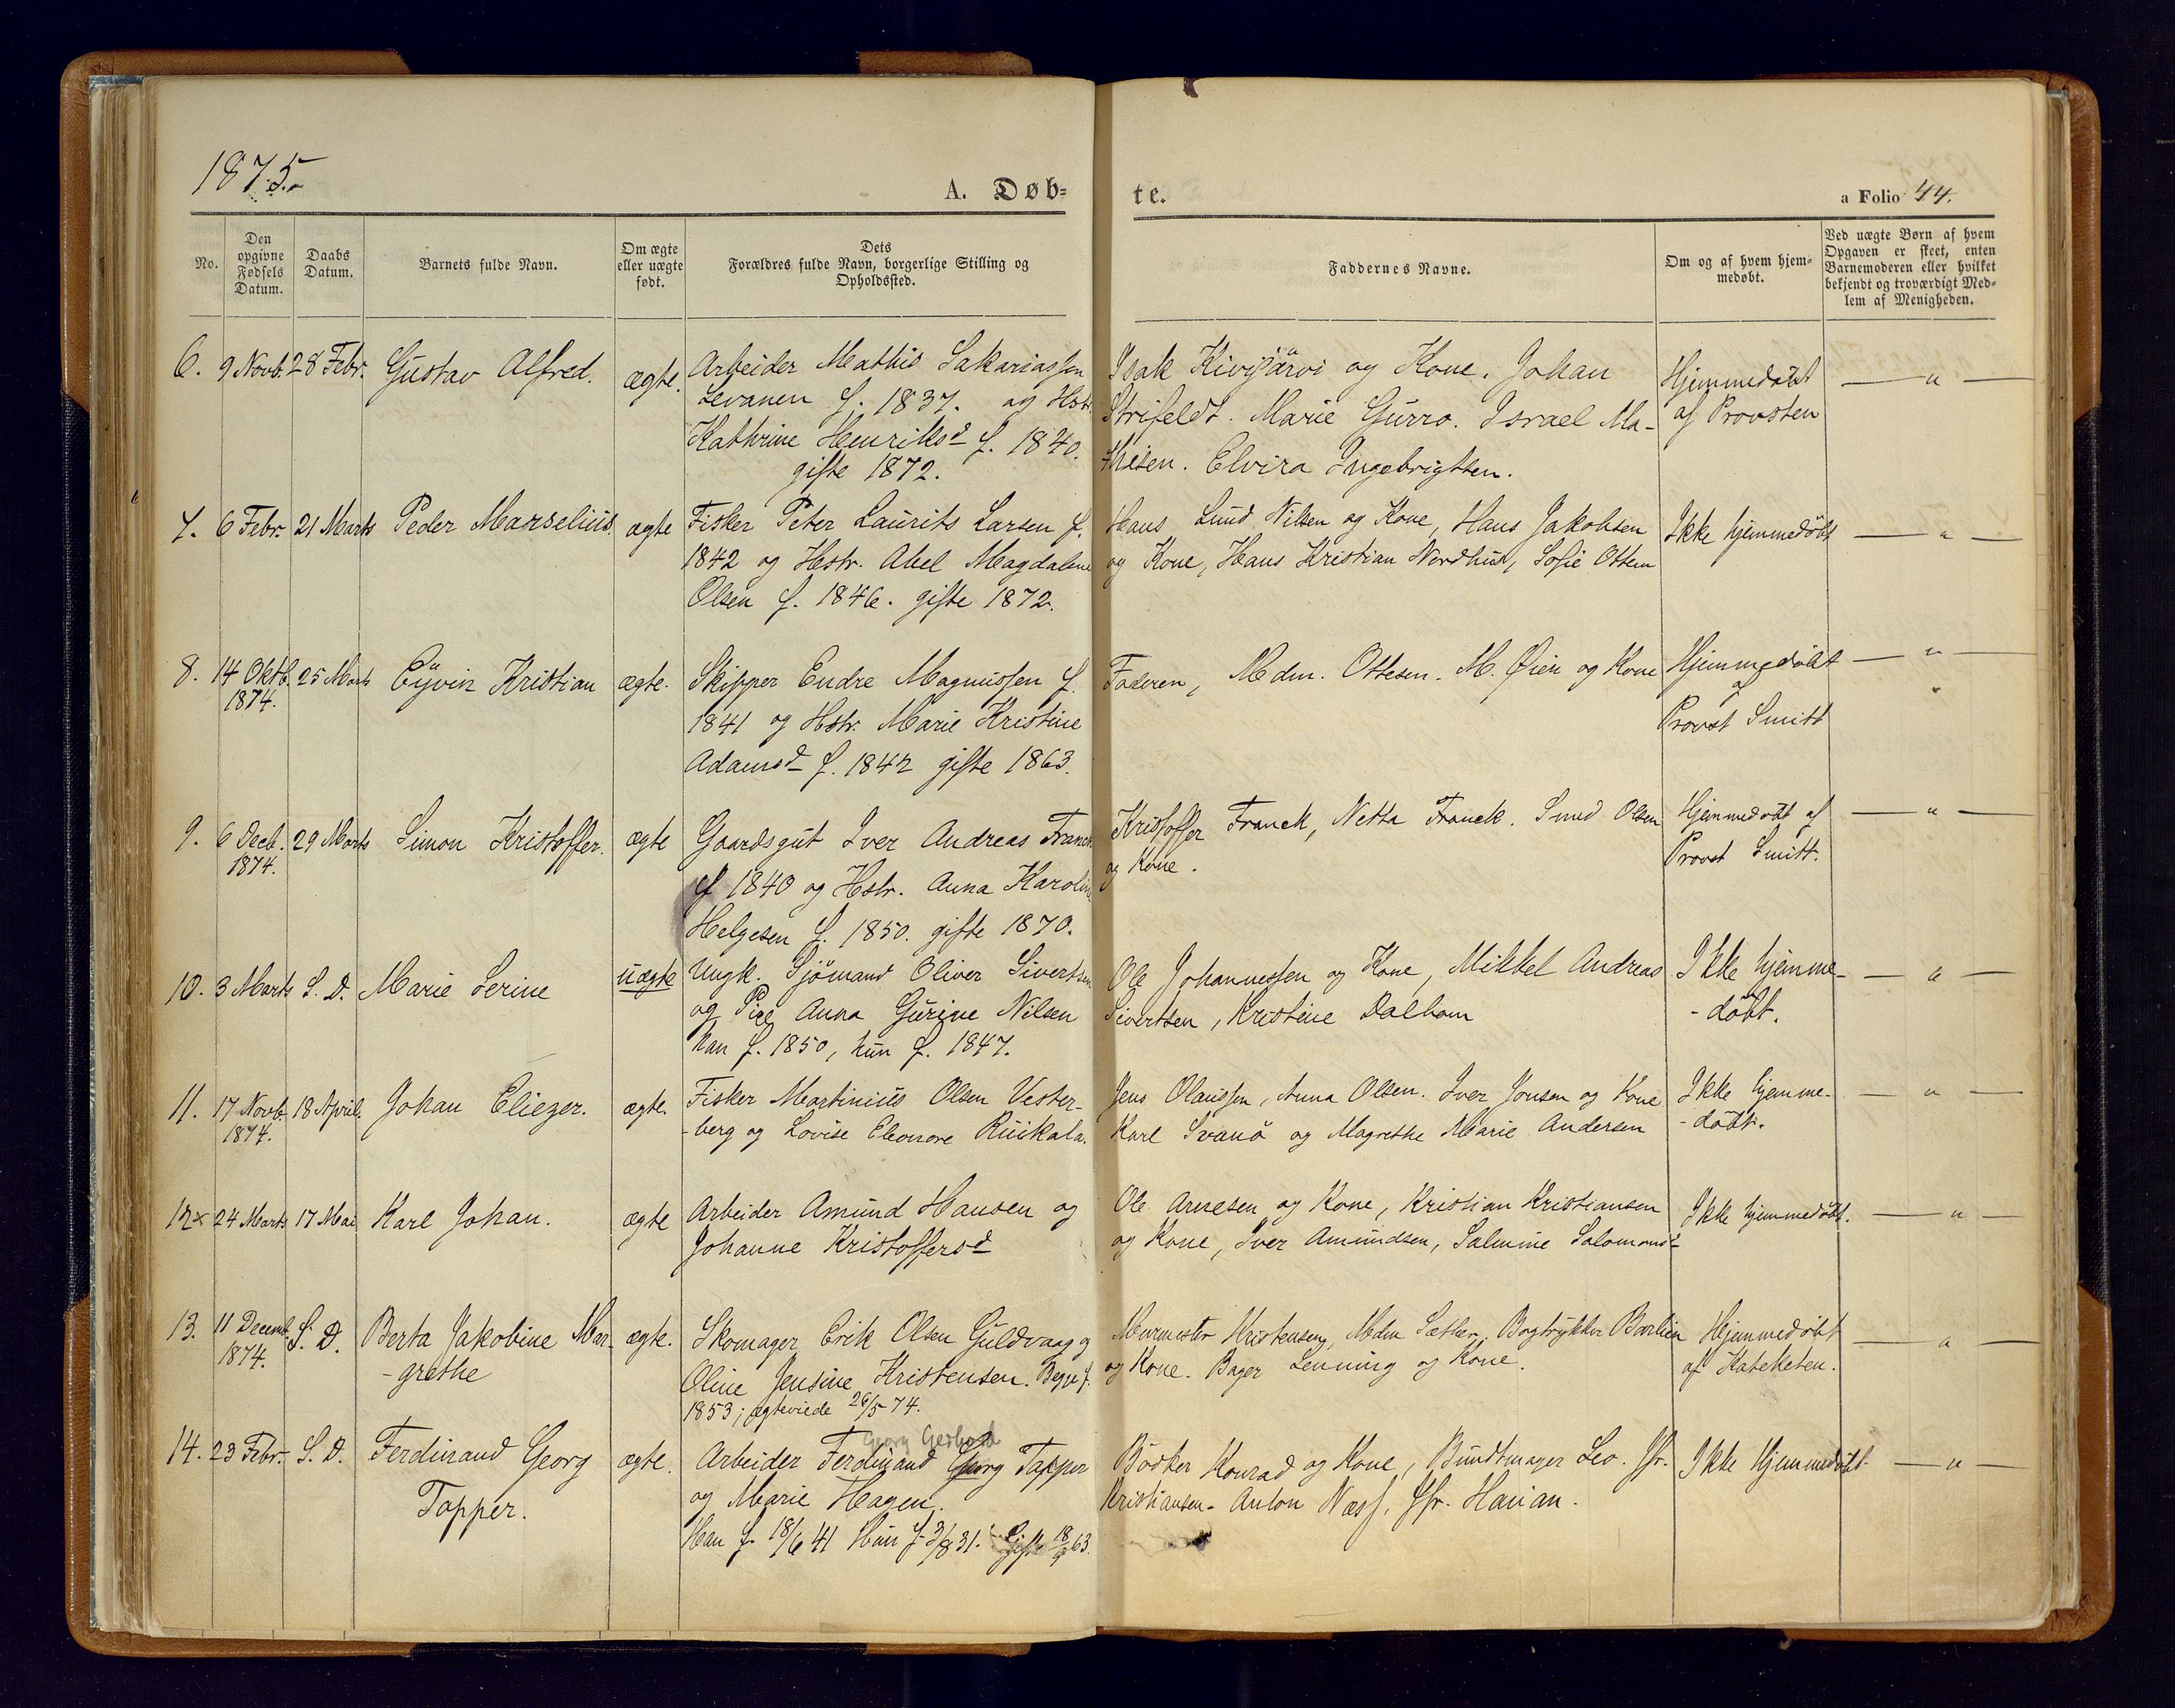 1875.
A. Døb=
te.
a Folio 44.
No.
Den opgivne Fødsels Datum.
Daabs Datum.
Barnets fulde Navn.
Om ægte eller uægte født.
Dets Forældres fulde Navn, borgerlige Stilling og Opholdssted.
Faddernes Navne.
Om og af hvem hjem-medøbt.
Ved uægte Børn af hvem Opgaven er skeet, enten Barnemoderen eller hvilket bekjendt og troværdigt Med=lem af Menigheden.
6. 9 Novb. 28 Febr. Gustav Alfred. ægte. Arbeider Mathis Sakariassen
Levanen f. 1837. og Hstr.
Kathrine Henriksd f. 1840.
gifte 1872.
Isak Kivijärvi og Kone. Johan
Strifeldt. Marie Gurro. Israel Ma-
thisen. Elvira Ingebrigtsen.
Hjemmedöbt
af Provsten
— " —
7. 6 Febr. 21 Marts Peder Marselius. ægte Fisker Peter Laurits Larsen f.
1842 og Hstr. Abel Magdalene
Olsen f. 1846. gifte 1872.
Hans Lund Nilsen og Kone, Hans Jakobsen
og Kone, Hans Kristian Nordhus, Sofie Ottem
Ikke hjemmedöbt
— " —
8. 14 Oktb. 25 Marts Eyvin Kristian ægte. Skipper Endre Magnussen f.
1874.
1841 og Hstr. Marie Kristine
Adamsd f. 1842 gifte 1863.
Faderen, Mdm. Ottesen. M. Øien og Kone
Hjemmedöbt
af
Provst Smitt
— " —
"
9. 6 Decb. 29 Marts Simon Kristoffer. ægte Gaardsgut Iver Andreas Franck
1874.
f 1840 og Hstr. Anna Karoline
Helgesen f. 1850. gifte 1870.
Kristoffer Franck, Netta Franck. Smed Olsen
og Kone.
Hjemmedöbt af
Provst Smitt.
— " —
10. 3 Marts S. D. Marie Serine uægte Ungk. Sjömand Oliver Sivertsen
og Pige Anna Gurine Nilsen
han f. 1850, hun f. 1847.
Ole Johannessen og Kone, Mikkel Andreas
Sivertsen, Kristine Dalham
Ikke hjemme-
-döbt.
— " —
11. 17 Novb. 18 April. Johan Eliezer. ægte. Fisker Martinius Olsen Vester-
1874.
-berg og Lovise Eleonore Ruikala.
Jens Olaussen, Anna Olsen. Iver Jonsen og Kone
Karl Svanö og Magrethe Marie Andersen
Ikke hjemme-
-döbt.
— " —
12× 24 Marts 17 Mai Karl Johan. ægte Arbeider Amund Hansen og
Johanne Kristoffersd
Ole Arnesen og Kone, Kristian Kristiansen
og Kone, Iver Amundsen, Salmine Salomonsd
Ikke hjemmedöbt.
— " —
13. 11 Decemb. S. D. Berta Jakobine Mar- ægte. Skomager Erik Olsen Guldvaag og
1874.
-grethe
Oline Jensine Kristensen. Begge f.
1853; ægteviede 26/5 74.
Murmester Kristensen, Mdm Sæther, Bogtrykker Barlien
og Kone. Bager Lenning og Kone.
Hjemmedöbt
af Kateketen.
— " —
Georg Gerhard
14. 23 Febr. S. D. Ferdinand Georg ægte. Arbeider Ferdinand Georg Tapper
Tapper.
og Marie Hagen.
Han f. 18/6 41 Hun f. 3/8 31. Gifte 18/9 63.
Bödker Konrad og Kone, Bundtmager Leo. Jfr.
Kristiansen. Anton Næss, Jfr. Havian.
Ikke Hjemmedöbt
— " —